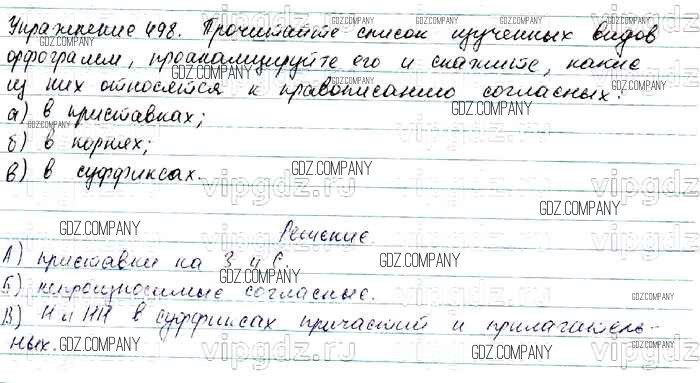 Упражнение 498. Прочитайте список изученных видов
орфограмм, проанализируйте его и скажите, какие
из них относятся к правописанию согласных:
а) в приставках;
б) в корнях;
в) в суффиксах.
Решение
А) приставки на З и С.
Б) непроизносимые согласные.
В) Н и НН в суффиксах причастий и прилагатель-
ных.
GDZ.COMPANY
vipgdz.ru